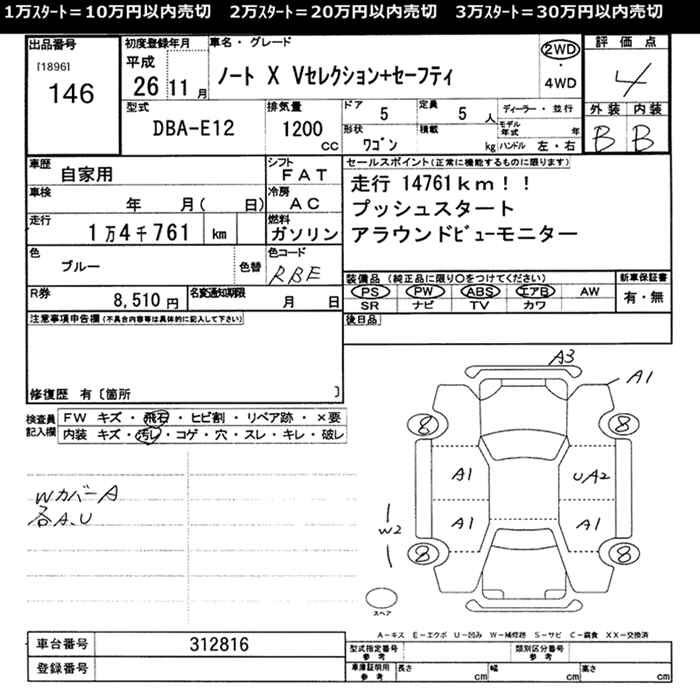 1万ｽﾀｰﾄ＝10万円以内売切　2万ｽﾀｰﾄ＝20万円以内売切　3万ｽﾀｰﾄ＝30万円以内売切
出品番号
[1896]
146
初度登録年月
平成
26 11 月
車名・グレード
ノート X Vセレクション+セーフティ
2WD
・
4WD
評価点
4
外装 内装
B B
型式
DBA-E12
排気量
1200
CC
ドア
5
定員
5 人
ディーラー・並行
モデル年式 年
形状
ﾜｺﾞﾝ
積載
kg
ハンドル 左・右
車歴
自家用
シフト
FAT
車検
年 月( 日)
冷房
AC
走行
1万4千761 km
燃料
ガソリン
色
ブルー
色替
色コード
RBE
R券
8,510 円
名変通知期限
月 日
セールスポイント(正常に機能するものに限ります)
走行 14761km！！
プッシュスタート
アラウンドﾋﾞｭｰモニター
装備品 (純正品に限り〇をつけてください)
PS PW ABS エアB AW
SR ナビ TV カワ
新車保証書
有・無
後日品
注意事項申告欄(不具合内容等は具体的に記入して下さい)
修復歴 有〔箇所 〕
検査員記入欄
FW キズ・飛石・ヒビ割・リペア跡・×要
内装 キズ・汚レ・コゲ・穴・スレ・キレ・破レ
Wカバー A
各A、U
A3
A1
8
8
A1
UA2
A1
A1
W2
8
8
スペア
A－キズ E－エクボ U－凹み W－補修跡 S－サビ C－腐食 XX－交換済
車台番号
312816
登録番号
型式指定番号
参考
類別区分番号
参考
車庫証明用
参考
長さ cm
幅 cm
高さ cm